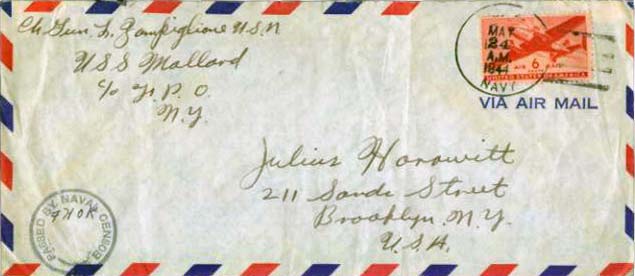 Ch Gun. L. Zampiglione U.S.N
USS Mallard
c/o F. P. O.
N.Y.
MAY
24
A.M.
1944
NAVY
AIR 6
UNITED STATES OF AMERICA
VIA AIR MAIL
Julius Horowitt
211 Sands Street
Brooklyn. N.Y.
U.S.A.
PASSED BY NAVAL CENSOR